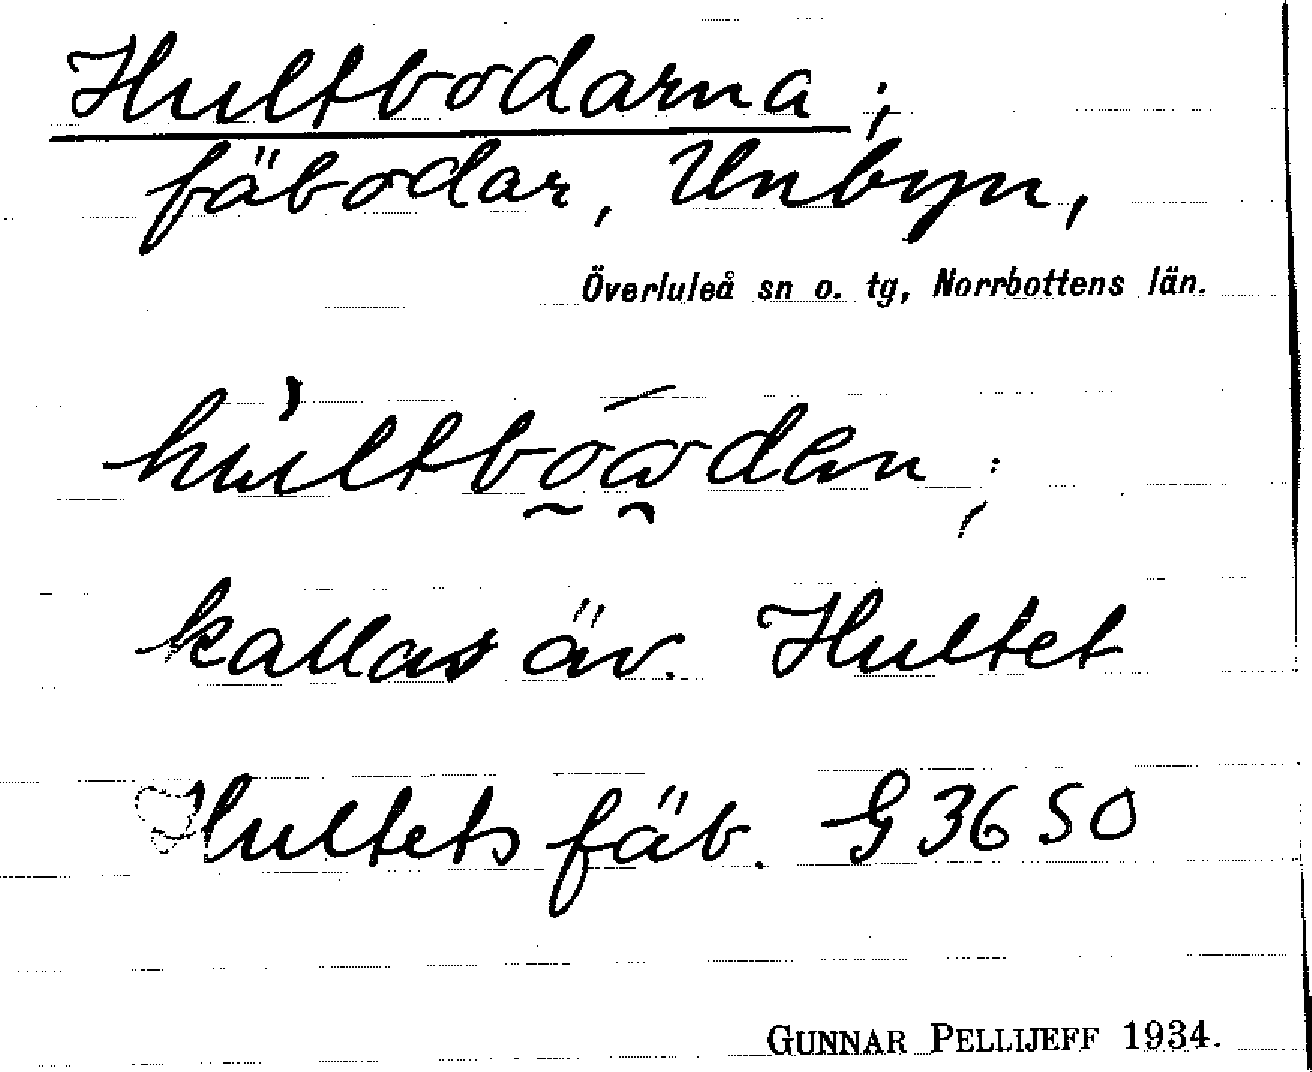 Hultbodarna;
fäbodar, Unbyn,
Överluleå sn o. tg, Norrbottens län.
kallas äv. Hultet
Hultets fäb. G 36 SO
GUNNAR PELLIJEFF 1934.